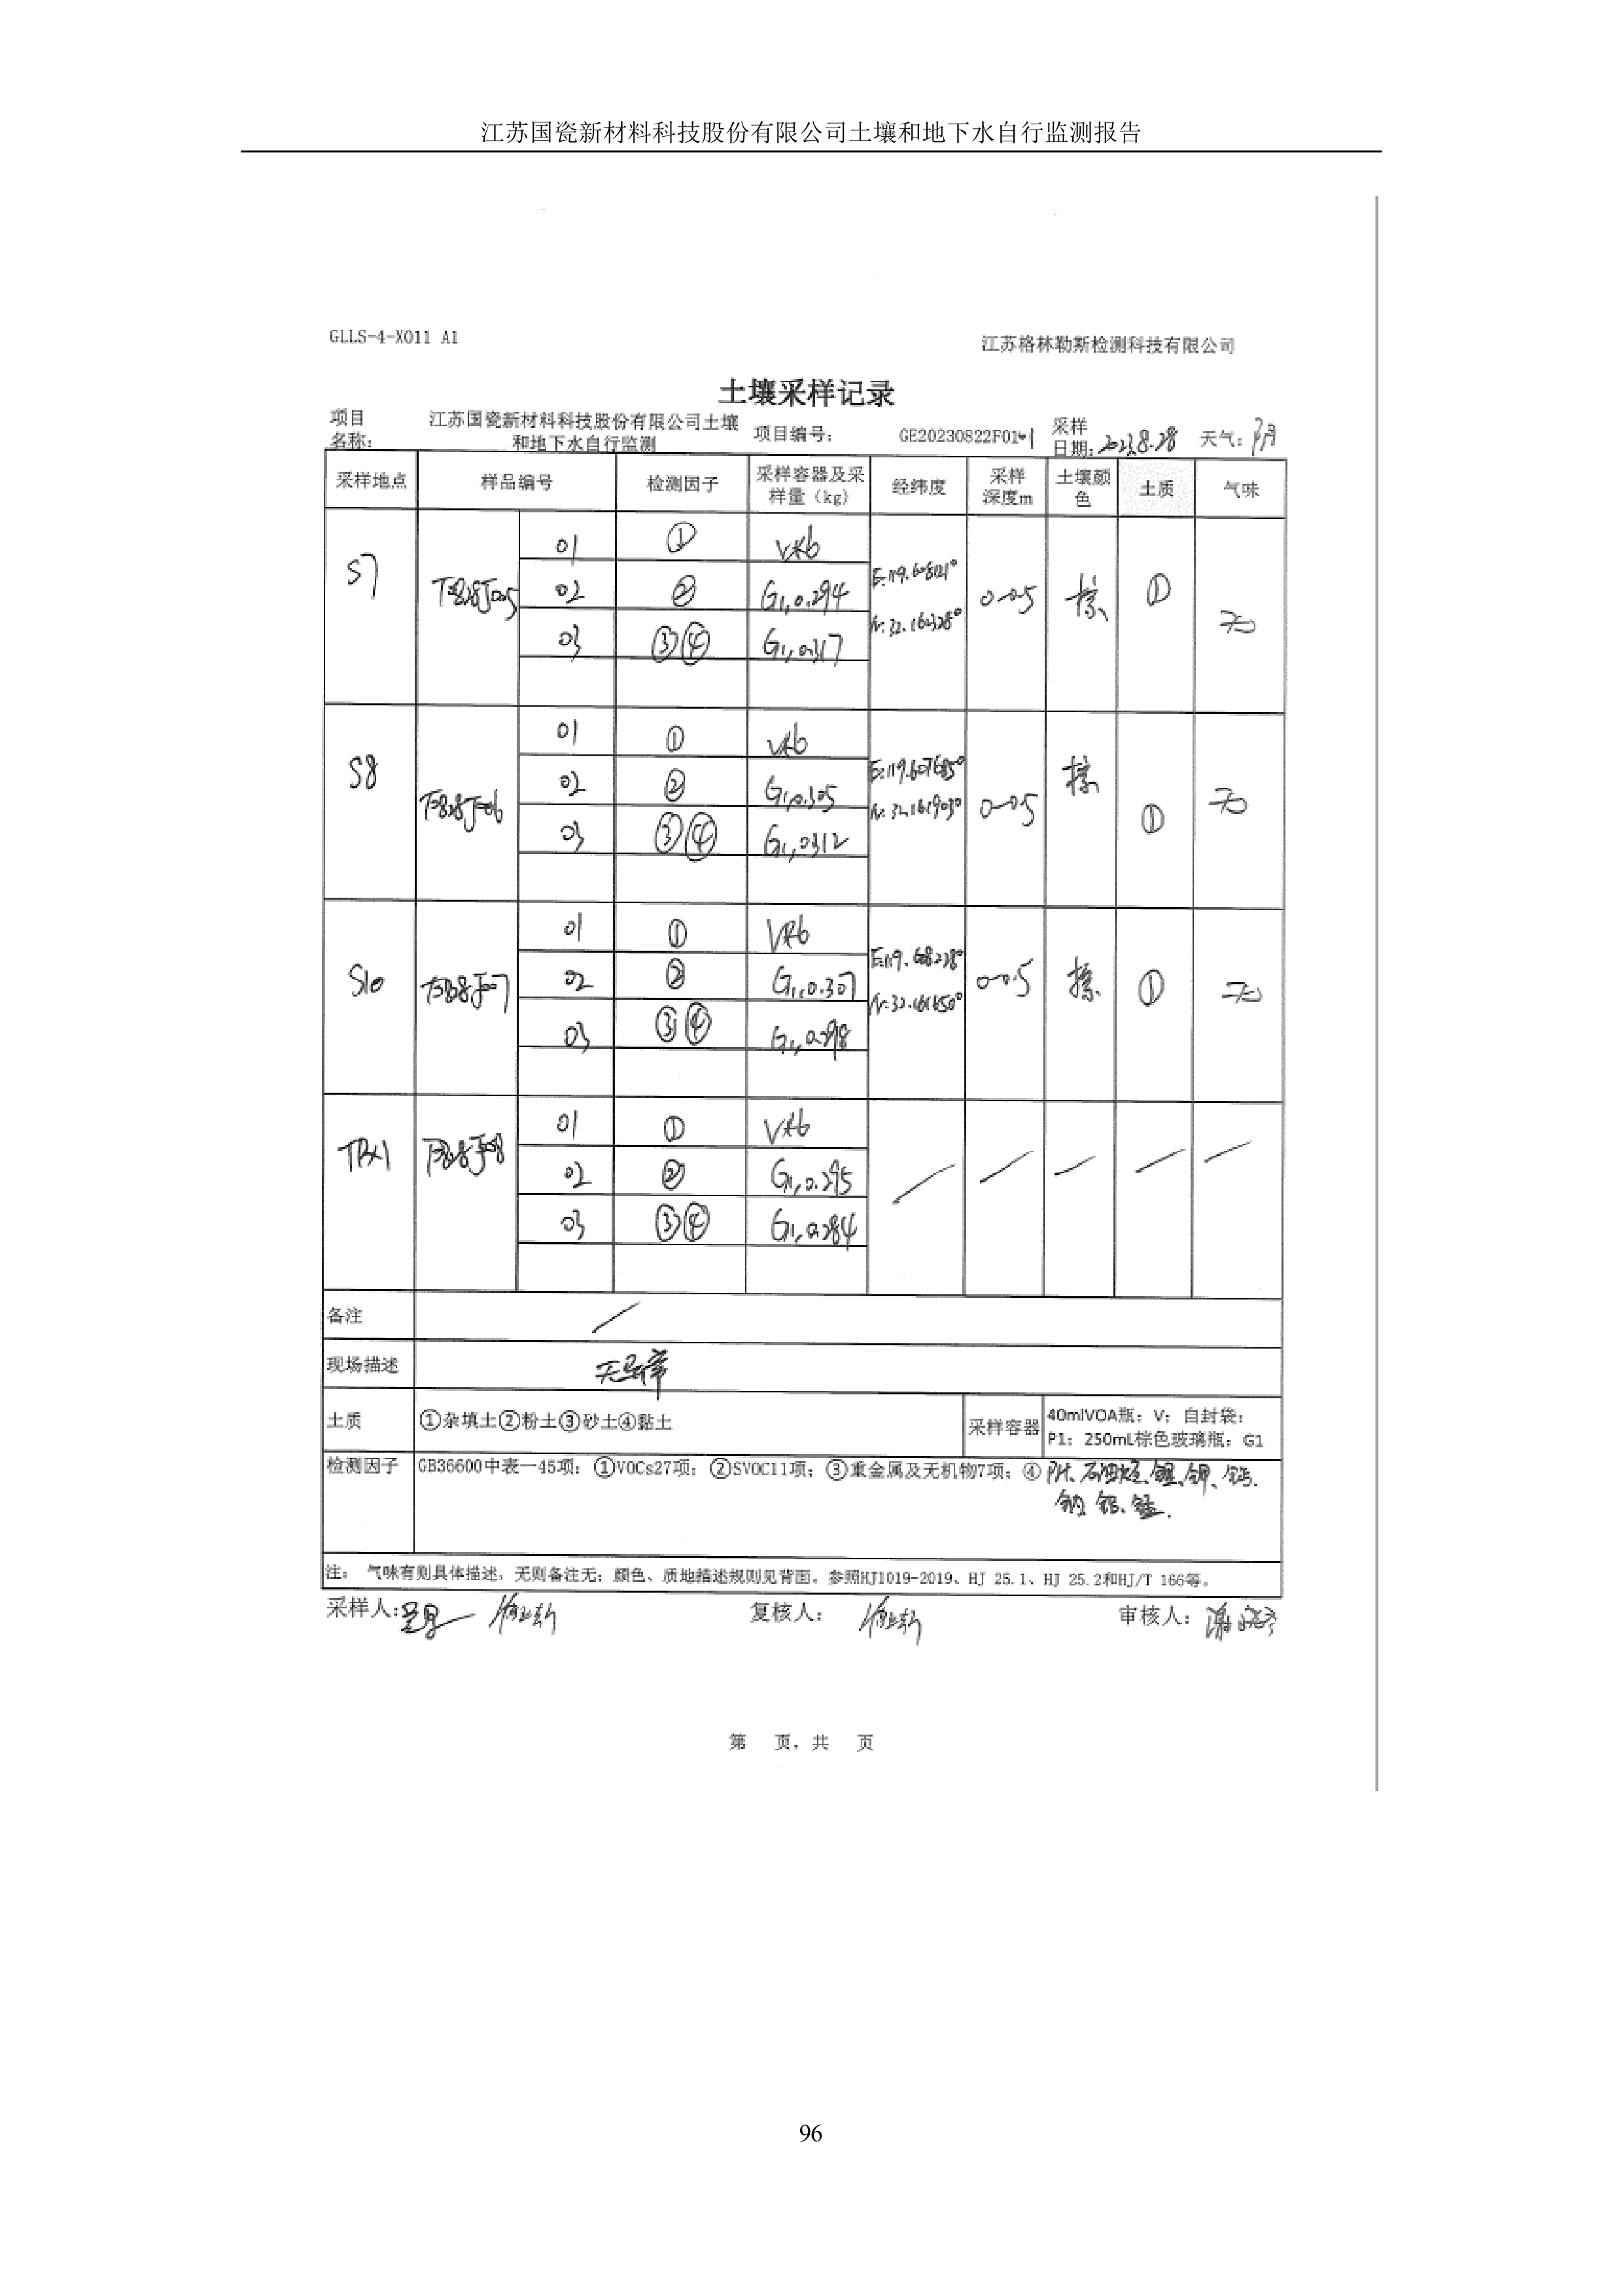 江苏国瓷新材料科技股份有限公司土壤和地下水自行监测报告
GLLS-4-X011 A1
江苏格林勒斯检测科技有限公司
土壤采样记录
项目名称: 江苏国瓷新材料科技股份有限公司土壤和地下水自行监测 项目编号: GE20230822F01 采样日期: 2023.8.28 天气: 阴
采样地点 样品编号 检测因子 采样容器及采样量 (kg) 经纬度 采样深度m 土壤颜色 土质 气味
S7 01 ① 0-0.5 棕 ① 无
02 ② G1,0.294
03 ③④ G1,0.317
S8 01 ① 0-0.5 棕 ① 无
02 ② G1,0.305
03 ③④ G1,0.312
S10 01 ① 0-0.5 棕 ① 无
02 ② G1,0.307
03 ③④ G1,0.298
01 ① /  /  /  /  /
02 ② G1,0.295
03 ③④ G1,0.284
备注 /
现场描述 无异常
土质 ①杂填土②粉土③砂土④黏土 采样容器 40mlVOA瓶: V; 自封袋: P1; 250mL棕色玻璃瓶: G1
检测因子 GB36600中表一45项: ①VOCs27项; ②SVOC11项; ③重金属及无机物7项; ④ pH、石油烃、锂、钾、钙、
钠、铝、锰.
注: 气味有则具体描述, 无则备注无; 颜色、质地描述规则见背面。参照HJ1019-2019、HJ 25.1、HJ 25.2和HJ/T 166等。
采样人: 复核人: 审核人:
第 页, 共 页
96